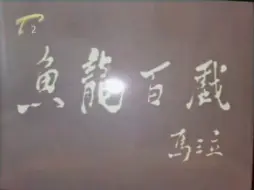 魚龍百戲
馬三立